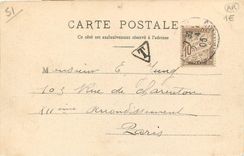 51
AK
1€
CARTE POSTALE
Ce côté est exclusivement réservé à l'adresse
T
10
05
Monsieur E. Jung
103 Rue de Charenton
111 ème Arrondissement
Paris